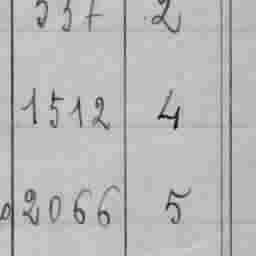 537 2
1512 4
2066 5